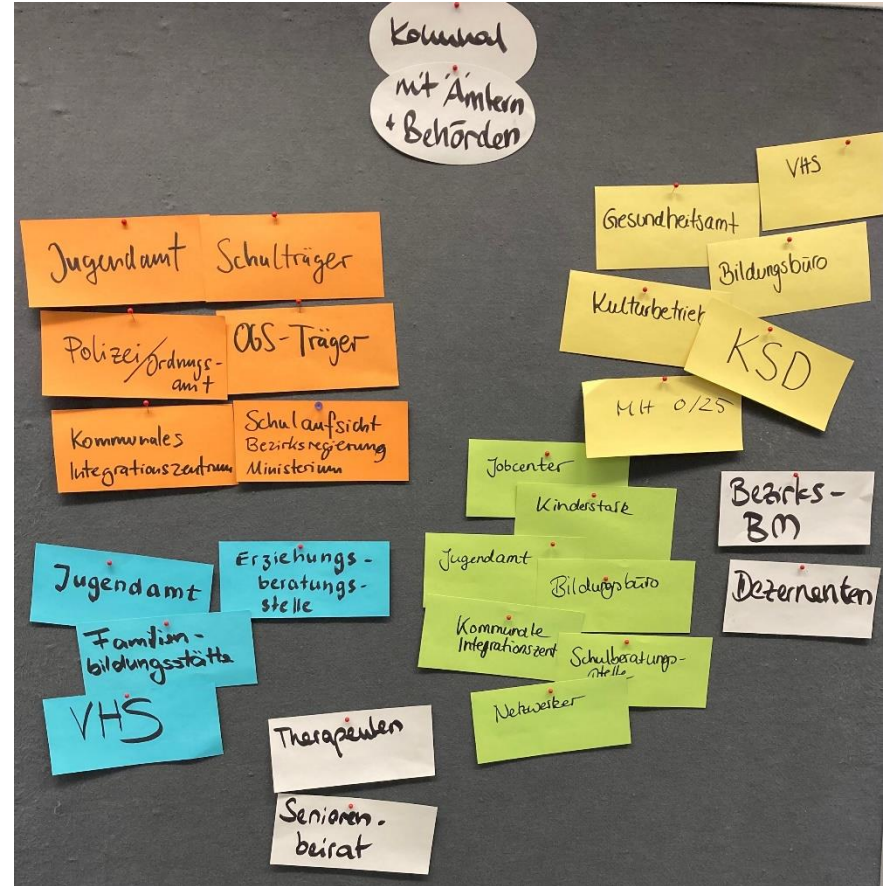 Kommunal
mit Ämtern
+ Behörden
Jugendamt
Schulträger
Polizei/Ordnungs-
amt
OGS-Träger
Kommunales
Integrationszentrum
Schulaufsicht
Bezirksregierung
Ministerium
VHS
Gesundheitsamt
Bildungsbüro
Kulturbetrieb
KSD
MH 0/25
Jobcenter
Kinderstark
Jugendamt
Bildungsbüro
Kommunale
Integrationszent
Schulberatungs-
stelle
Netzwerker
Bezirks-
BM
Dezernenten
Jugendamt
Erziehungs-
beratungs-
stelle
Familien-
bildungsstätte
VHS
Therapeuten
Senioren-
beirat